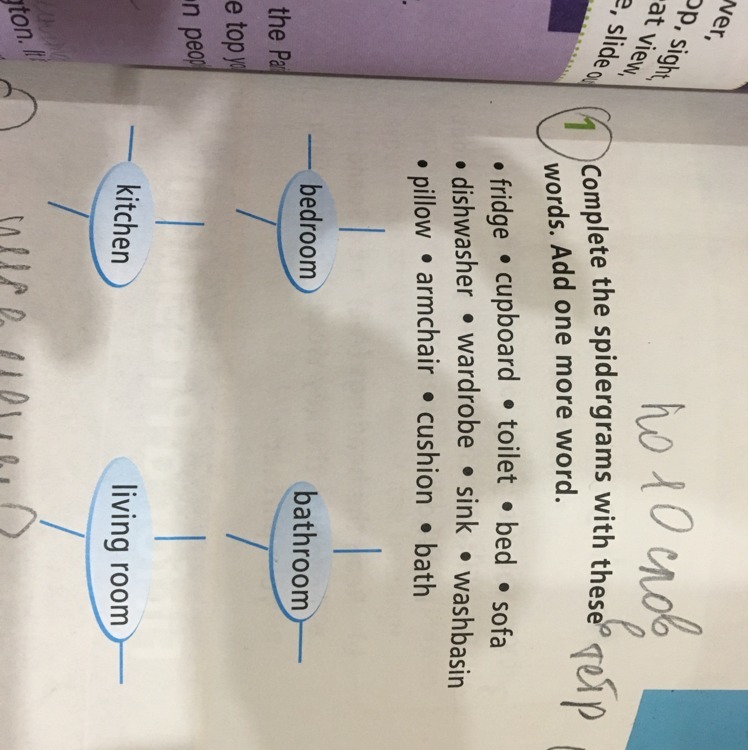 по 10 слов
в тетр
1 Complete the spidergrams with these
words. Add one more word.
• fridge • cupboard • toilet • bed • sofa
• dishwasher • wardrobe • sink • washbasin
• pillow • armchair • cushion • bath
bedroom
bathroom
kitchen
living room
wer,
op, sight,
at view,
e, slide
the
e top
n
gton.